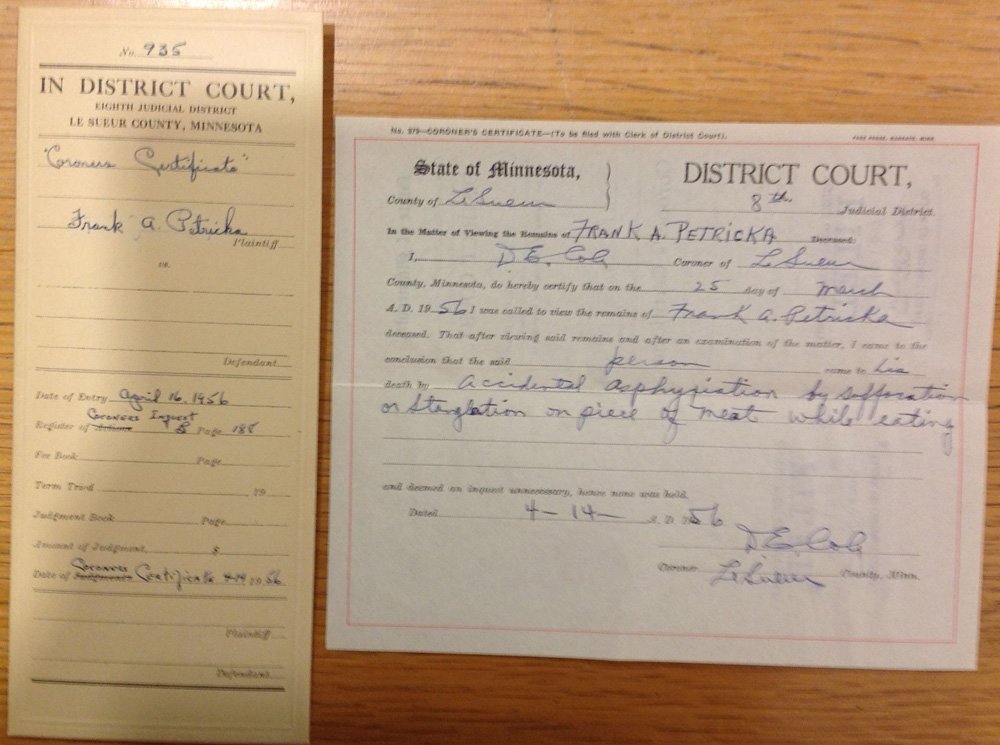 No. 935
IN DISTRICT COURT,
EIGHTH JUDICIAL DISTRICT
LE SUEUR COUNTY, MINNESOTA
"Coroners Certificate"
Frank A. Petricka
Plaintiff
vs.
Defendant.
Date of Entry April 16, 1956
Coroners Inquest
Register of Actions B Page 188
Fee Book Page
Term Tried , 19
Judgment Book Page
Amount of Judgment, $
Coroners
Date of Judgment Certificate 4-14 1956
Plaintiff
Defendant.
No. 979—CORONER'S CERTIFICATE—(To be filed with Clerk of District Court).
State of Minnesota,
County of LeSueur
DISTRICT COURT,
8th Judicial District.
In the Matter of Viewing the Remains of FRANK A. PETRICKA Deceased:
I, D.E. Cole Coroner of LeSueur
County, Minnesota, do hereby certify that on the 25 day of March
A. D. 1956 I was called to view the remains of Frank A. Petricka
deceased. That after viewing said remains and after an examination of the matter, I came to the
conclusion that the said person came to his
death by Accidental asphyxiation by suffocation
or Stranglation on piece of meat while eating
and deemed an inquest unnecessary, hence none was held.
Dated 4-14- A. D. 1956
D.E. Cole
Coroner LeSueur County, Minn.